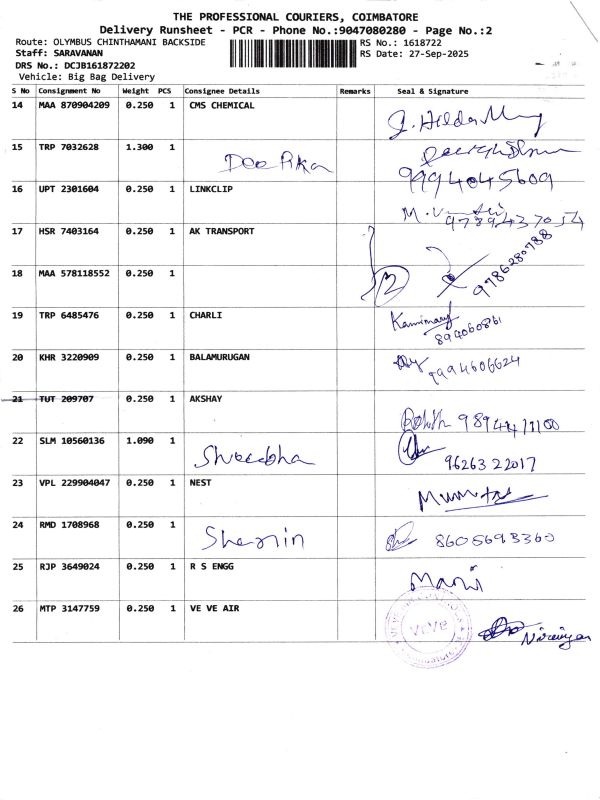 THE PROFESSIONAL COURIERS, COIMBATORE
Delivery Runsheet - PCR - Phone No.:9047080280 - Page No.:2
Route: OLYMBUS CHINTHAMANI BACKSIDE
RS No.: 1618722
Staff: SARAVANAN
RS Date: 27-Sep-2025
DRS No.: DCJB161872202
Vehicle: Big Bag Delivery
S No Consignment No Weight PCS Consignee Details Remarks Seal & Signature
14 MAA 870904209 0.250 1 CMS CHEMICAL
15 TRP 7032628 1.300 1 Deepika
9994045609
16 UPT 2301604 0.250 1 LINKCLIP
9789437054
17 HSR 7403164 0.250 1 AK TRANSPORT
9786280788
18 MAA 578118552 0.250 1
19 TRP 6485476 0.250 1 CHARLI
20 KHR 3220909 0.250 1 BALAMURUGAN
9994606624
21 TUT 209707 0.250 1 AKSHAY
22 SLM 10560136 1.090 1 Shreebha
9626322017
23 VPL 229904047 0.250 1 NEST
Mumtas
24 RMD 1708968 0.250 1
8605693360
25 RJP 3649024 0.250 1 R S ENGG
Mani
26 MTP 3147759 0.250 1 VE VE AIR
VEVE